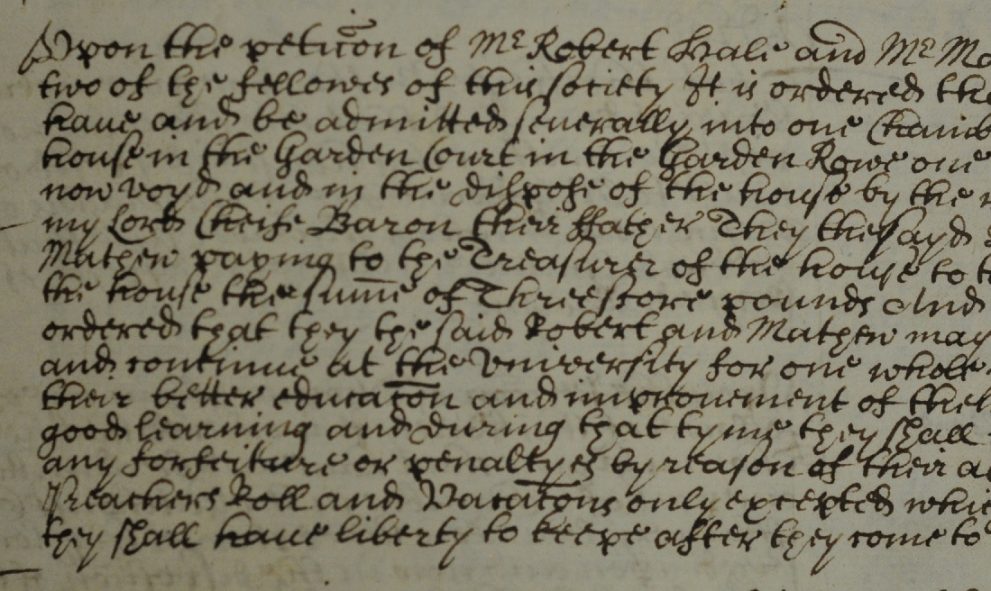 Upon the peticon of Mr Robert Hale and Mr Ma
two of the fellowes of this society It is ordered the
haue and be admitted seuerally into one Chamb
house in the Garden Court in the Garden Rowe one
now voyd and in the dispose of the house by the
my Lord Cheife Baron their ffather They the sayd
Mathew paying to the Treasurer of the house to t
the house the summe of Threescore pounds And
ordered that they the said Robert and Mathew may
and continue at the Vniversity for one whole
their better educacon and improuement of thei
good learning and during that tyme they shall
any forfeiture or penaltyes by reason of their a
Preachers Roll and Vacacons only excepted whic
they shall haue liberty to keepe after they come to